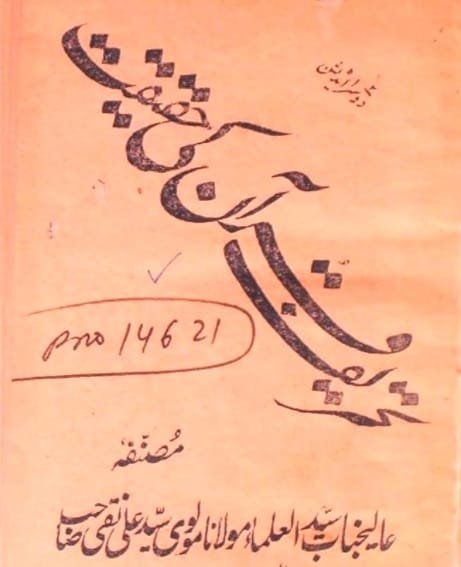 دوسرا ایڈیشن
تحریف قرآن کی حقیقت
pno 14621
مصنفہ
عالیجناب سیّد العلماء مولانا مولوی سیّد علی نقی صاحب